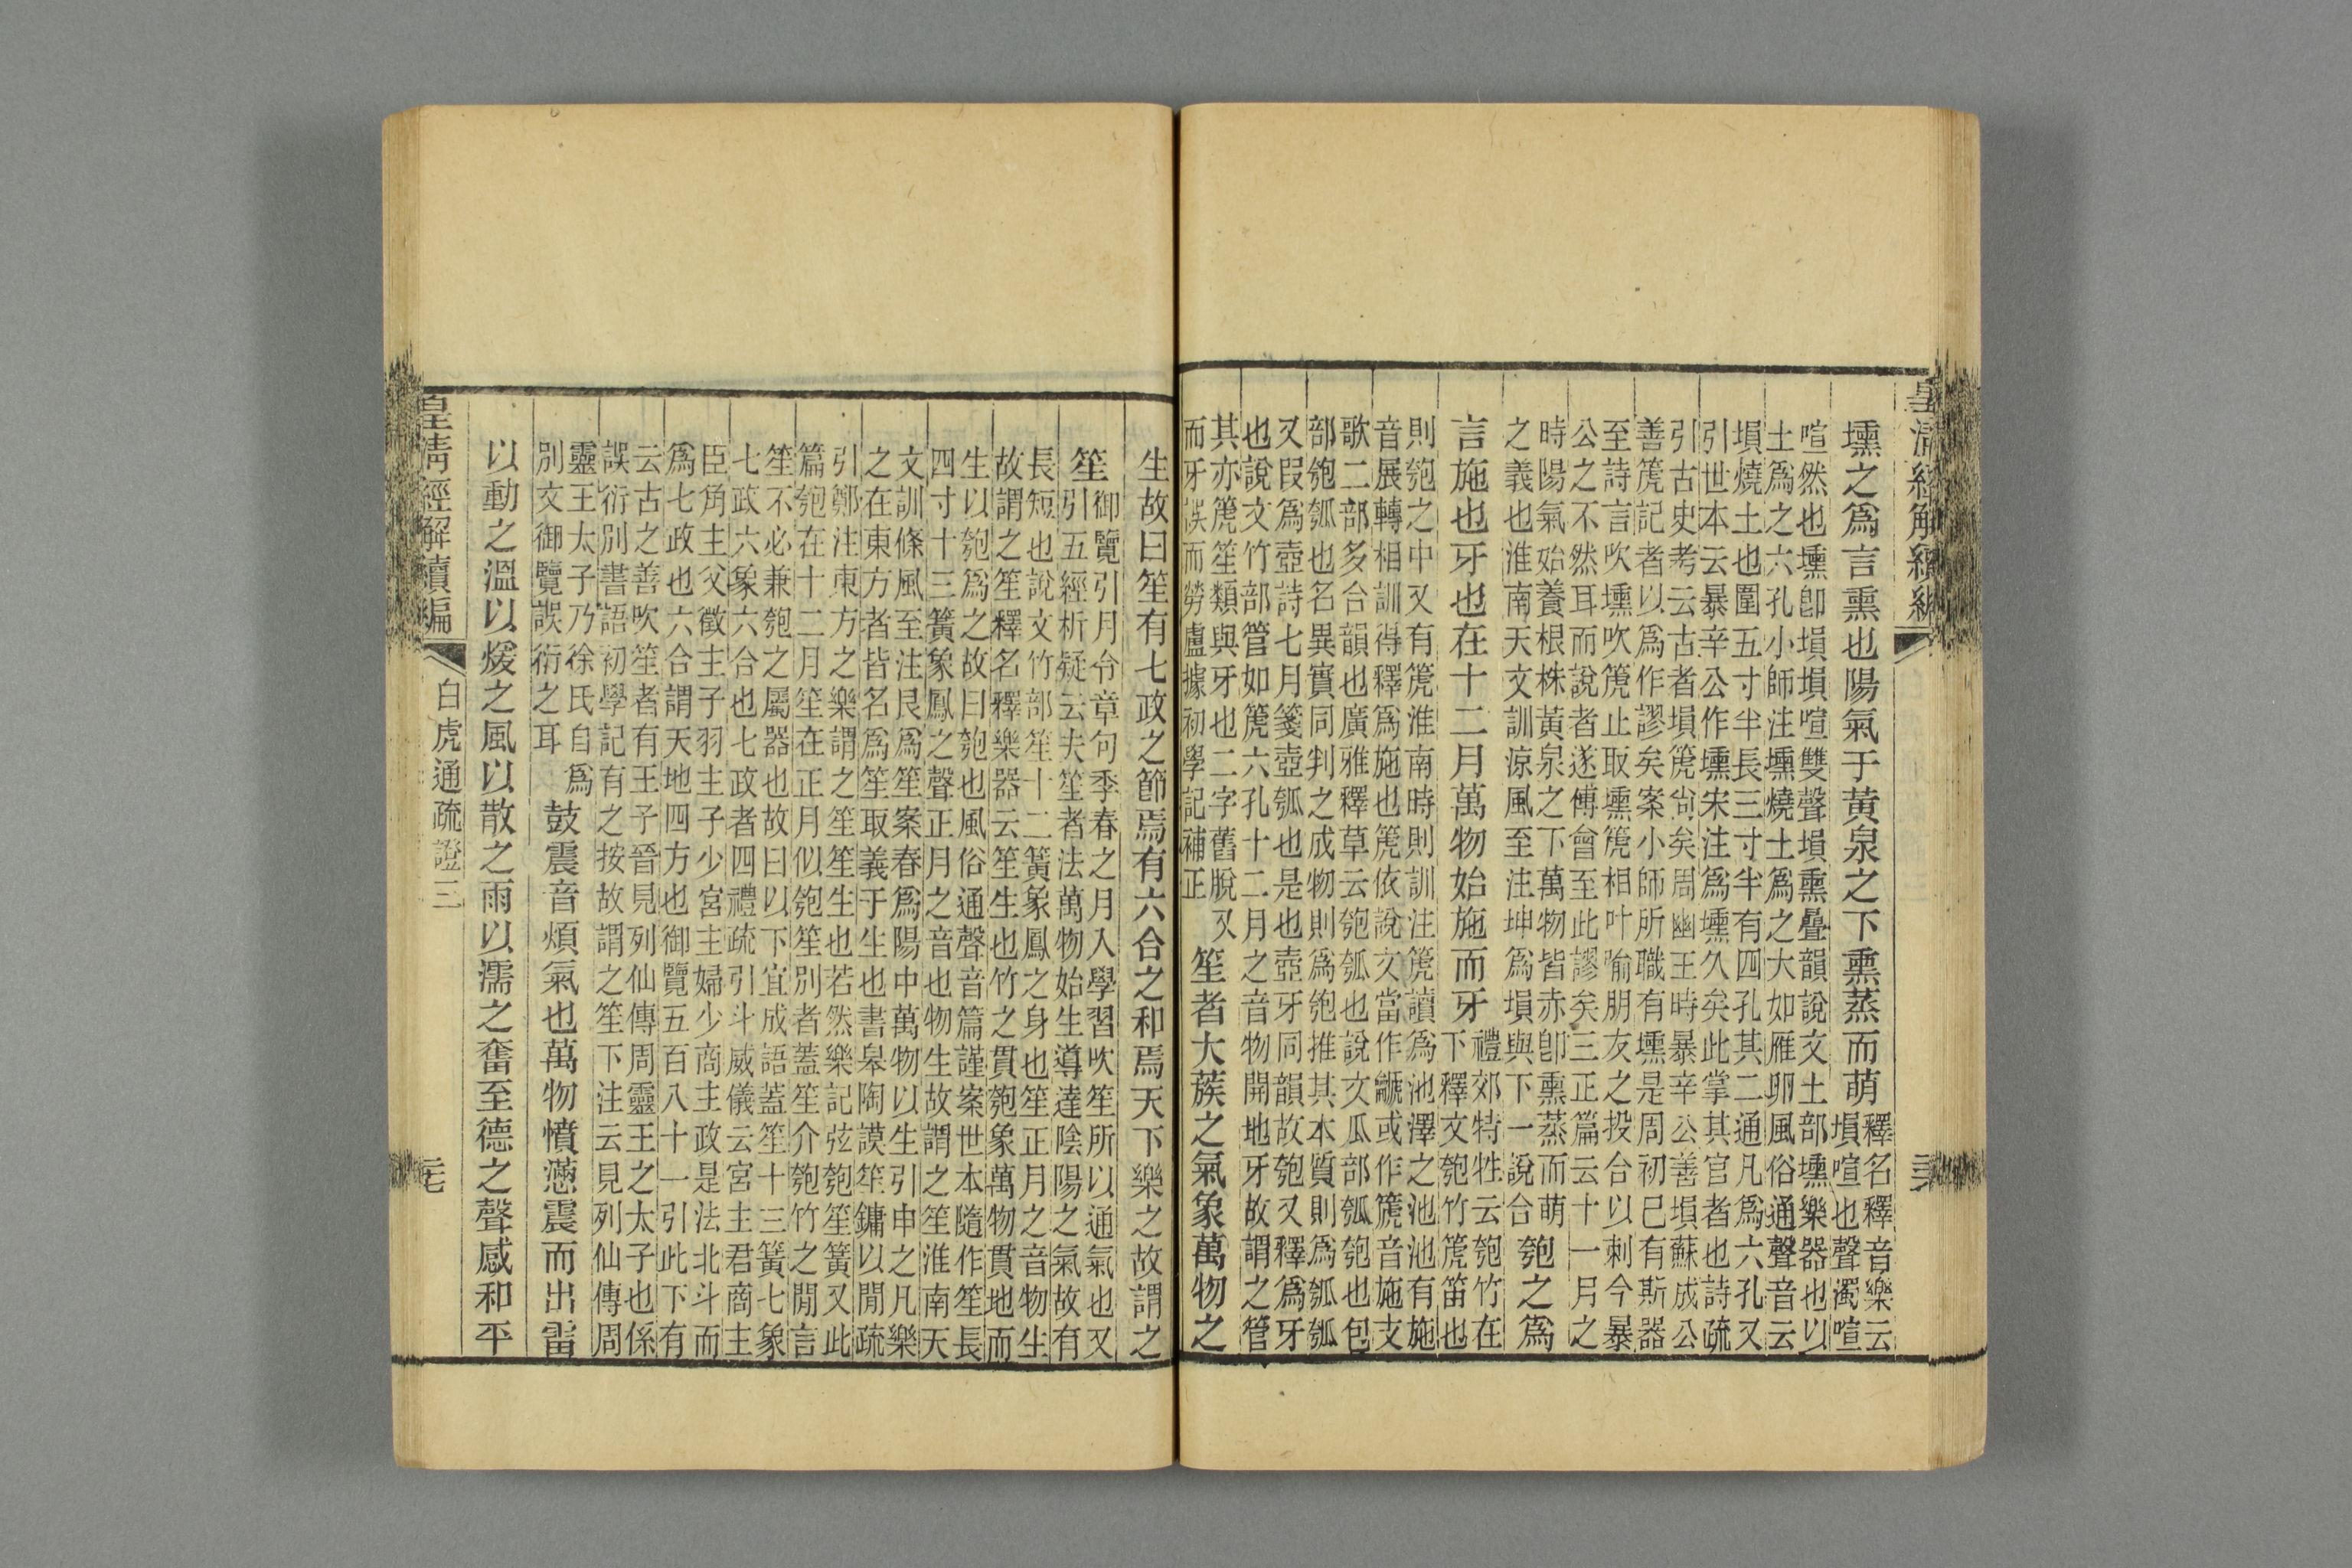 皇清經解續編
壎之爲言熏也陽氣于黃泉之下熏蒸而萌
釋名釋音樂云
塤喧也聲濁喧
喧然也壎卽塤塤喧雙聲塤熏疊韻說文土部壎樂器也以
土爲之六孔小師注壎燒土爲之大如雁卵風俗通聲音云
塤燒土也圍五寸半長三寸半有四孔其二通凡爲六孔又
引世本云暴辛公作壎宋注爲壎久矣此掌其官者也詩疏
引古史考云古者塤箎尙矣周幽王時暴辛公善塤蘇成公
善箎記者以爲作謬矣案小師所職有壎是周初巳有斯器
至詩言吹壎吹箎止取壎箎相叶喻朋友之投合以刺今暴
公之不然耳而說者遂傅會至此謬矣三正篇云十一月之
時陽氣始養根株黃泉之下萬物皆赤卽熏蒸而萌
之義也淮南天文訓涼風至注坤爲塤與下一說合
匏之爲
言施也牙也在十二月萬物始施而牙
禮郊特牲云匏竹在
下釋文匏竹箎笛也
則匏之中又有箎淮南時則訓注箎讀爲池澤之池池有施
音展轉相訓得釋爲施也箎依說文當作鷈或作篪音施支
歌二部多合韻也廣雅釋草云匏瓠也說文瓜部瓠匏也包
部匏瓠也名異實同判之成物則爲匏推其本質則爲瓠瓠
又叚爲壺詩七月箋壺瓠也是也壺牙同韻故匏又釋爲牙
也說文竹部管如箎六孔十二月之音物開地牙故謂之管
其亦箎笙類與牙也二字舊脫又
而牙誤而勞盧據初學記補正
笙者大蔟之氣象萬物之
生故曰笙有七政之節焉有六合之和焉天下樂之故謂之
笙
御覽引月令章句季春之月入學習吹笙所以通氣也又
引五經析疑云夫笙者法萬物始生導達陰陽之氣故有
長短也說文竹部笙十二簧象鳳之身也笙正月之音物生
故謂之笙釋名釋樂器云笙生也竹之貫匏象萬物貫地而
生以匏爲之故曰匏也風俗通聲音篇謹案世本隨作笙長
四寸十三簧象鳳之聲正月之音也物生故謂之笙淮南天
文訓條風至注艮爲笙案春爲陽中萬物以生引申之凡樂
之在東方者皆名爲笙取義于生也書皋陶謨笙鏞以閒疏
引鄭注東方之樂謂之笙笙生也若然樂記弦匏笙簧又此
篇匏在十二月笙在正月似匏笙別者蓋笙介匏竹之閒言
笙不必兼匏之屬器也故曰以下宜成語蓋笙十三簧七象
七政六象六合也七政者四禮疏引斗威儀云宮主君商主
臣角主父徵主子羽主子少宮主婦少商主政是法北斗而
爲七政也六合謂天地四方也御覽五百八十一引此下有
云古之善吹笙者有王子晉見列仙傳周靈王之太子也係
誤衍別書語初學記有之按故謂之笙下注云見列仙傳周
靈王太子乃徐氏自爲
別文御覽誤衍之耳
鼓震音煩氣也萬物憤懣震而出雷
以動之溫以煖之風以散之雨以濡之奮至德之聲感和平
皇清經解續編
白虎通疏證三